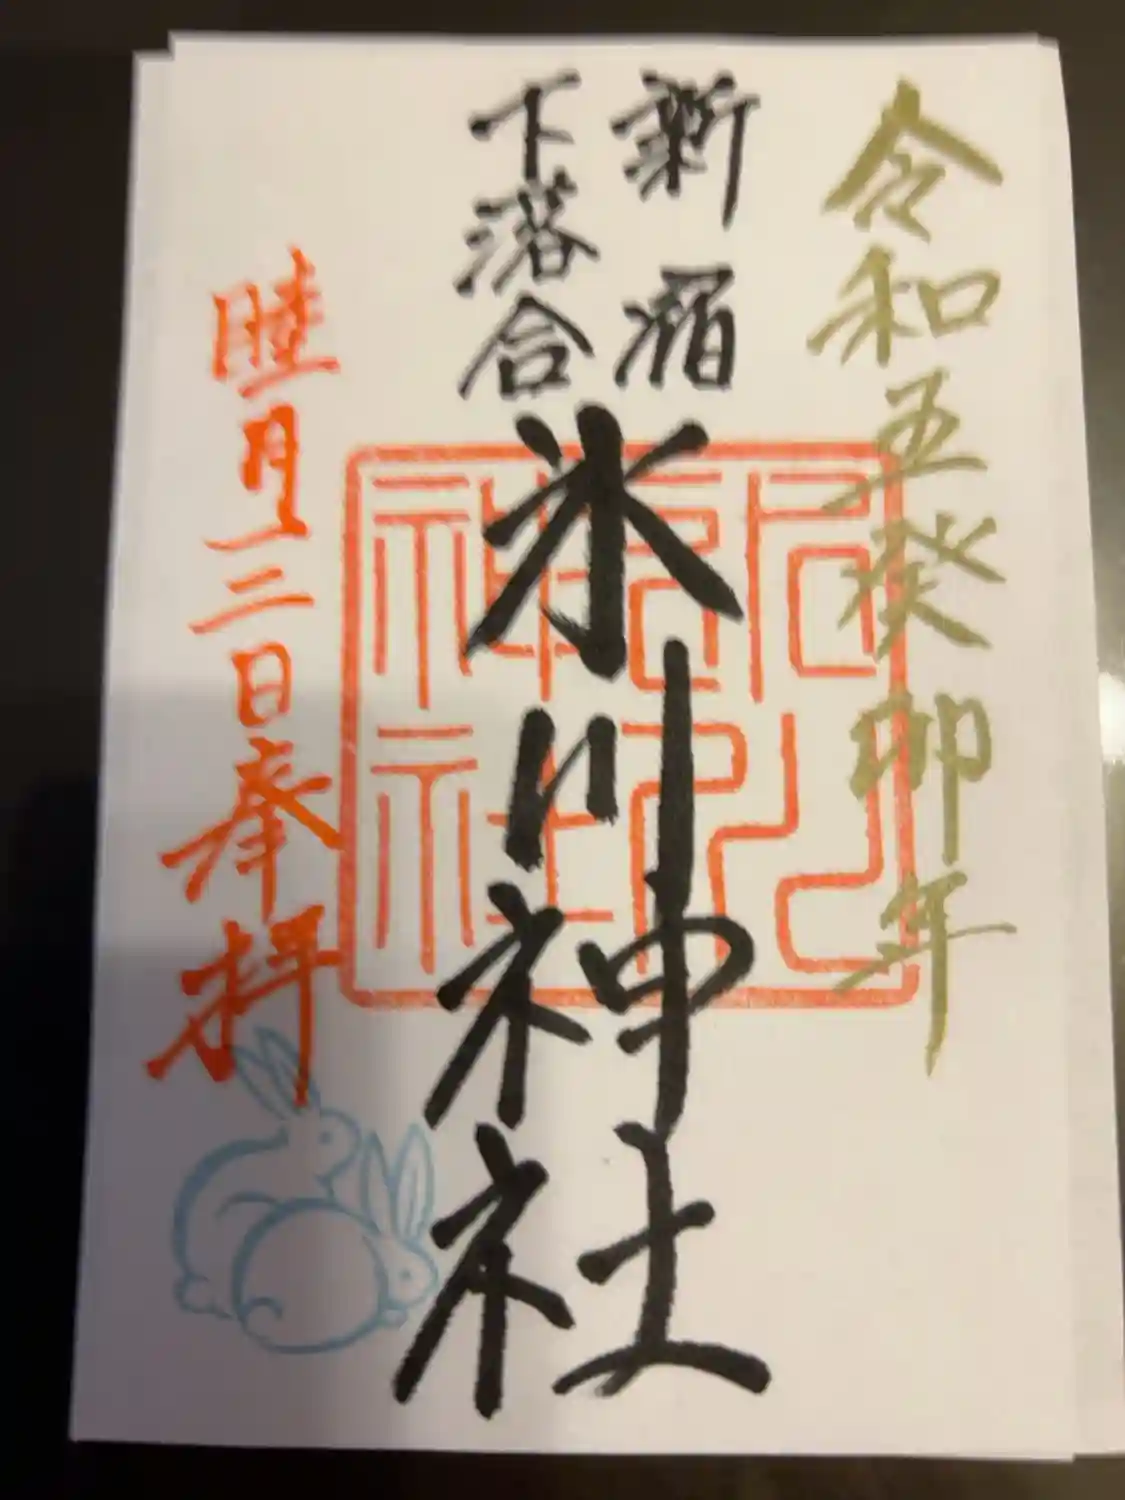 令和五癸卯年
新宿
下落合
氷川神社
睦月三日奉拝